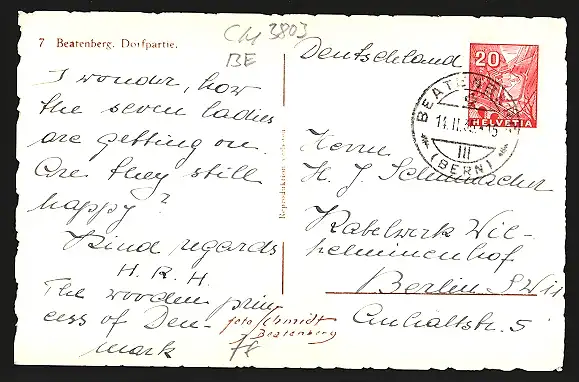 7 Beatenberg. Dorfpartie.
CH 3803
BE
I wonder, how
the seven ladies
are getting on.
Are they still
happy?
Kind regards
H. R. H.
The wooden prin
cess of Den-
mark
foto Schmidt
Beatenberg
Deutschland
20
HELVETIA
BEATENBERG
14.II.
15
III
(BERN)
Herrn
H. J. Schumacher
Kabelwerk Wil-
helminenhof
Berlin SW 11
Anhaltstr. 5